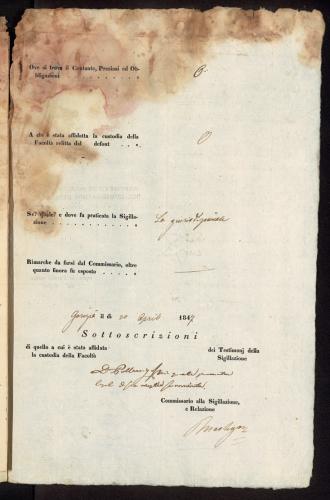 Ove si trova il Contante, Preziosi ed Ob-
bligazioni . . . . . . . .
O.
A chi è stata affidata la custodia della
Facoltà relitta dal defont . . .
O
Se? Quale? e dove fu praticata la Sigilla-
zione . . . . . . . . . . . .
La giurisdizionale
Rimarche da farsi dal Commissario, oltre
quanto finora fu esposto . . . .
Gorizia li di 20 April 1847
Sottoscrizioni
di quello a cui è stata affidata
la custodia della Facoltà
dei Testimonj della
Sigillazione
Commissario alla Sigillazione,
e Relazione